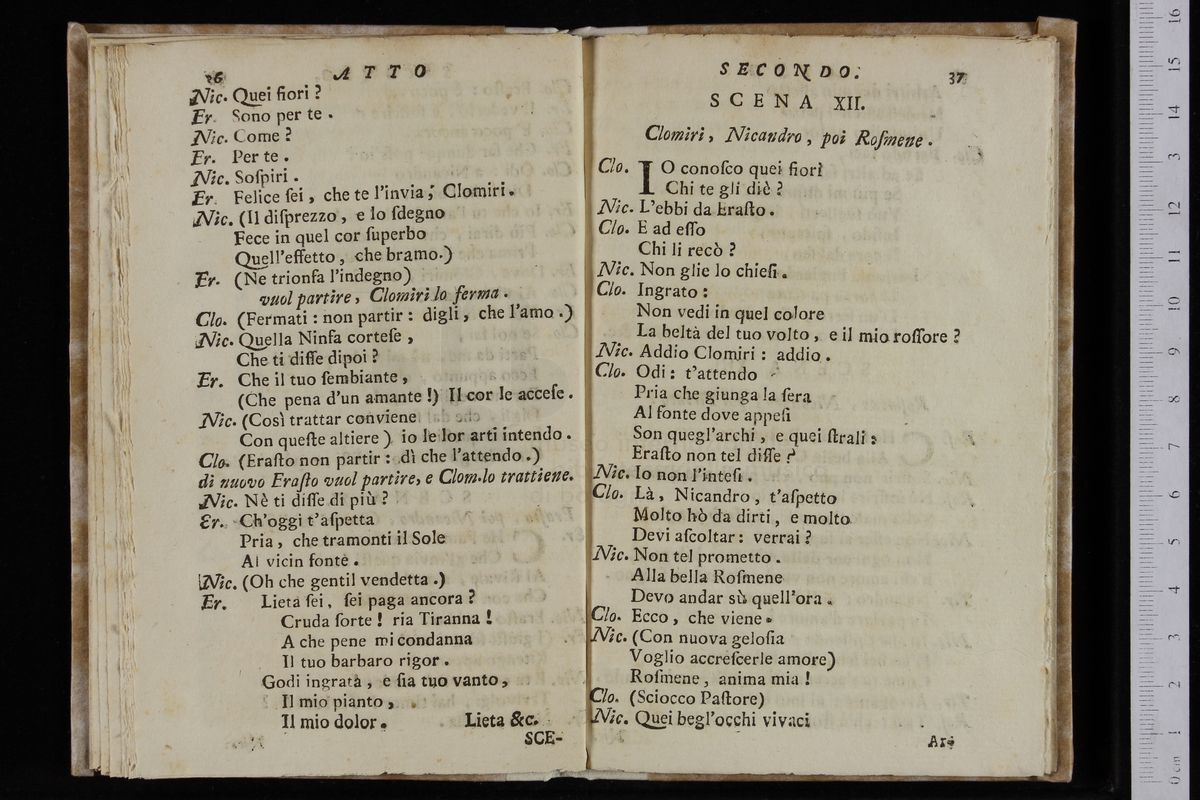 36 ATTO
Nic. Quei fiori ?
Er. Sono per te .
Nic. Come ?
Er. Per te .
Nic. Soſpiri .
Er. Felice ſei , che te l'invia , Clomiri .
Nic. (Il diſprezzo , e lo ſdegno
Fece in quel cor ſuperbo
Quell'effetto , che bramo.)
Er. (Ne trionfa l'indegno)
vuol partire , Clomiri lo ferma .
Clo. (Fermati : non partir : digli , che l'amo .)
Nic. Quella Ninfa corteſe ,
Che ti diſſe dipoi ?
Er. Che il tuo ſembiante ,
(Che pena d'un amante !) Il cor le acceſe .
Nic. (Così trattar conviene
Con queſte altiere ) io le lor arti intendo .
Clo. (Eraſto non partir : dì che l'attendo .)
di nuovo Eraſto vuol partire, e Clom.lo trattiene.
Nic. Nè ti diſſe di più ?
Er. Ch'oggi t'aſpetta
Pria , che tramonti il Sole
Al vicin fonte .
Nic. (Oh che gentil vendetta .)
Er. Lieta ſei , ſei paga ancora ?
Cruda ſorte ! ria Tiranna !
A che pene mi condanna
Il tuo barbaro rigor .
Godi ingrata , e ſia tuo vanto ,
Il mio pianto ,
Il mio dolor . Lieta &c.
SCE-
SECONDO. 37
SCENA XII.
Clomiri , Nicandro , poi Roſmene .
Clo. IO conoſco quei fiori
Chi te gli diè ?
Nic. L'ebbi da Eraſto .
Clo. E ad eſſo
Chi li recò ?
Nic. Non glie lo chieſi .
Clo. Ingrato :
Non vedi in quel colore
La beltà del tuo volto , e il mio roſſore ?
Nic. Addio Clomiri : addio .
Clo. Odi : t'attendo
Pria che giunga la ſera
Al fonte dove appeſi
Son quegl'archi , e quei ſtrali :
Eraſto non tel diſſe ?
Nic. Io non l'inteſi .
Clo. Là , Nicandro , t'aſpetto
Molto hò da dirti , e molto
Devi aſcoltar : verrai ?
Nic. Non tel prometto .
Alla bella Roſmene
Devo andar sù quell'ora .
Clo. Ecco , che viene .
Nic. (Con nuova geloſia
Voglio accreſcerle amore)
Roſmene , anima mia !
Clo. (Sciocco Paſtore)
Nic. Quei begl'occhi vivaci
Ar-
0 cm 1 2 3 4 5 6 7 8 9 10 11 12 13 14 15 16